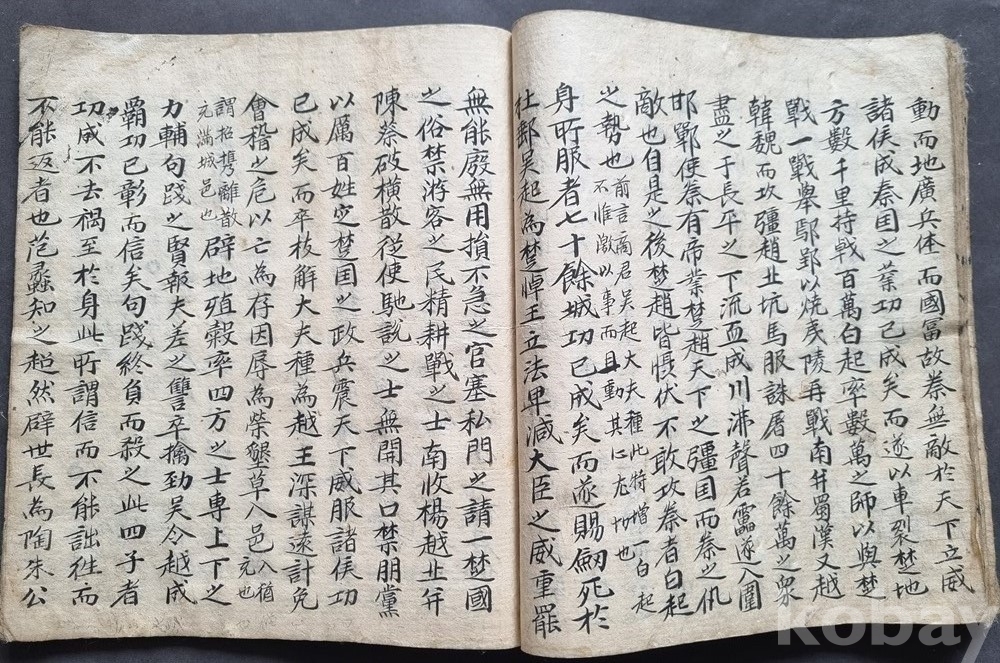 動而地廣兵休而國富故秦無敵於天下立威
諸侯成秦国之業功已成矣而遂以車裂楚地
方數千里持戟百萬白起率數萬之師以與楚
戰一戰擧鄢郢以燒夷陵再戰南并蜀漢又越
韓魏而攻彊趙北坑馬服誅屠四十餘萬之衆
盡之于長平之下流血成川沸聲若雷遂入圍
邯鄲使秦有帝業楚趙天下之彊国而秦之仇
敵也自是之後楚趙皆慑伏不敢攻秦者白起
之勢也前言商君吳起大夫種此特增一白起
不惟激以事而且動其心尤切也
身所服者七十餘城功已成矣而遂賜劒死於
杜郵吳起為楚悼王立法卑減大臣之威重罷
無能廢無用損不急之官塞私門之請一楚國
之俗禁游客之民精耕戰之士南收楊越北并
陳蔡破橫散從使馳說之士無開其口禁朋黨
以厲百姓定楚国之政兵震天下威服諸侯功
已成矣而卒枝解大夫種為越王深謀遠計免
會稽之危以亡為存因辱為榮墾草入邑入猶
充也
謂招携離散
充滿城邑也辟地殖穀率四方之士専上下之
力輔句踐之賢報夫差之讐卒擒勁吳令越成
霸功已彰而信矣句踐終負而殺之此四子者
功成不去禍至於身此所謂信而不能詘往而
不能返者也范蠡知之超然辟世長為陶朱公
kobay